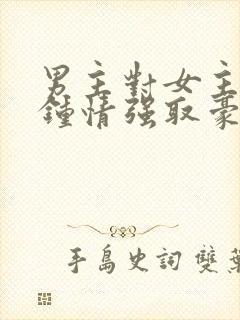 男主對女主
鍾情強取豪
手島史詞 雙葉